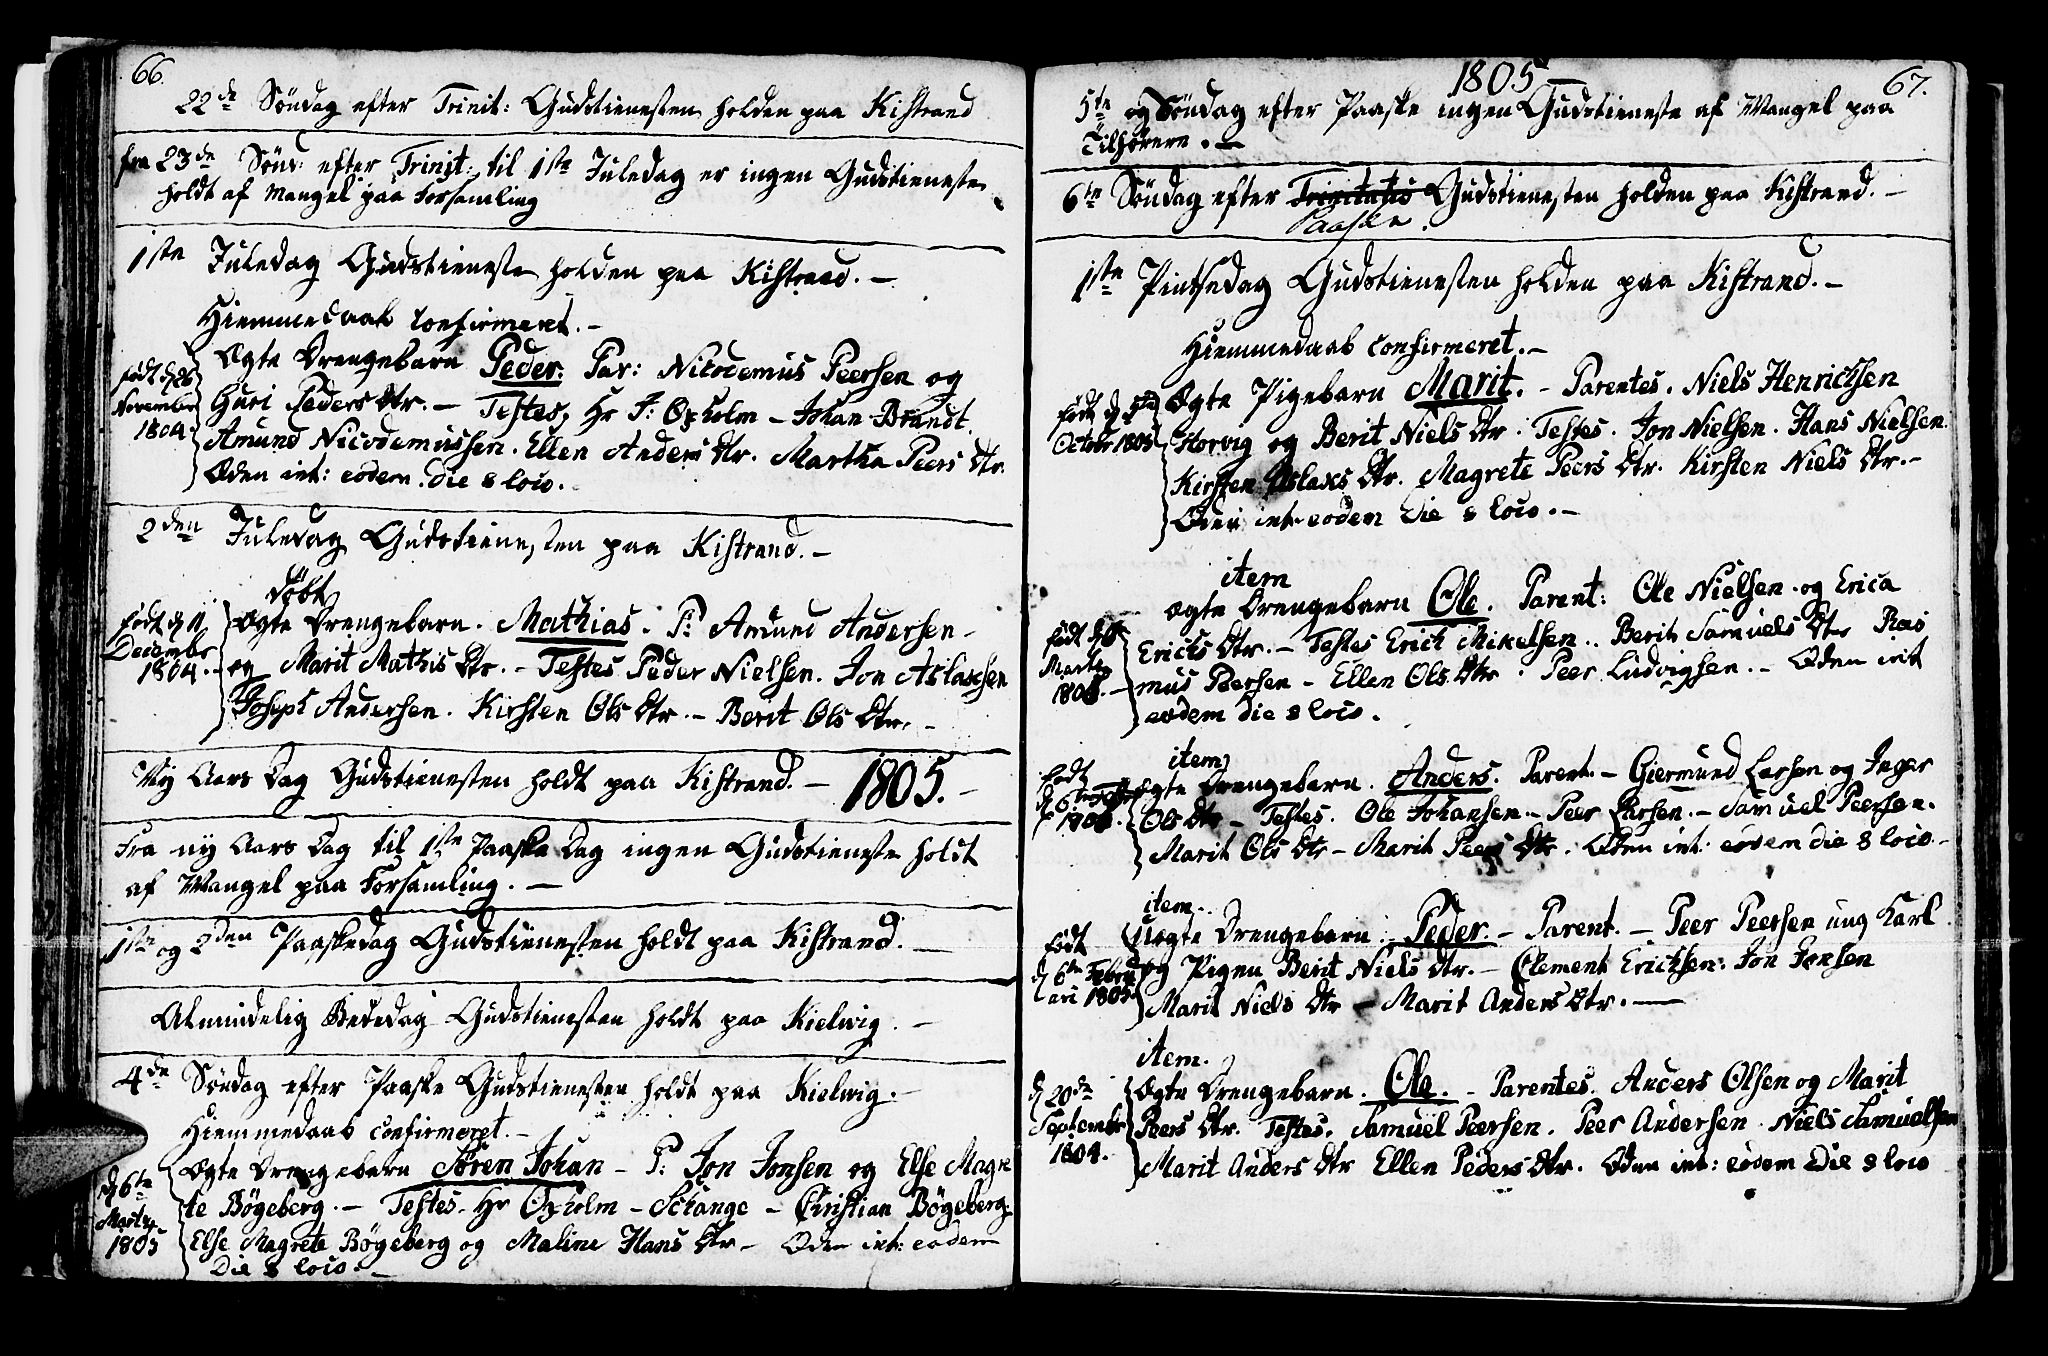 66.
22de Söndag efter Trinit: Gudstienesten holden paa Kistrand
fra 23de Sönd: efter Trinit: til 1ste Juledag er ingen Gudstieneste
holdt af Mangel paa Forsamling
1ste Juledag Gudstieneste holden paa Kistrand. -
Hiemmedaab Confirmeret. -
født d 26 November 1804.
Ægte Drengebarn Peder: Par: Nicodemus Peersen og
Guri Peders Dtr. - Testes, Hr F: Oxholm - Johan Brandt.
Amund Nicodemussen. Ellen Anders Dtr. Martha Peers Dtr.
Oden int: eodem die & loco.
2den Juledag Gudstienesten paa Kistrand. -
döbt
født d 11 Decembr 1804. -
Ægte Drengebarn. Mathias. P: Amund Andersen -
og Marit Mathis Dtr. - Testes Peder Nielsen. Jon Aslaksen
Joseph Andersen. Kirsten Ols Dtr. - Berit Ols Dtr. -
Ny Aars Dag Gudstienesten holdt paa Kistrand. - 1805. -
Fra ny Aars Dag til 1ste Paaske Dag ingen Gudstieneste holdt
af Mangel paa Forsamling. -
1ste og 2den Paaskedag Gudstienesten holdt paa Kistrand. -
Almindelig Bededag Gudstienesten holdt paa Kielwig. -
4de Söndag efter Paaske Gudstienesten holdt paa Kielwig. -
Hiemmedaab confirmeret. -
d 6te Marty 1805
Ægte Drengebarn Sören Johan - P: Jon Jonsen og Else Magre
te Bögeberg. - Testes. Hr Oxholm - Schange - Christian Bögeberg.
Else Magrete Bögeberg og Maline Hans Dtr - Oden int: eodem
Die & loco. -
1805 -
67.
5te og Söndag efter Paaske ingen Gudstieneste af Mangel paa
Tilhörere. -
6te Söndag efter Trinitatis Gudstienesten holden paa Kistrand. -
Paaske.
1ste Pintsedag Gudstienesten holden paa Kistrand. -
Hiemmedaab confirmeret. -
Octobr 1805
Ægte Pigebarn Marit. - Parentes. Niels Henrichsen
Korvig og Berit Niels Dtr. Testes. Jon Nielsen. Hans Nielsen.
Kirsten Aslaks Dtr. Magrete Peers Dtr. Kirsten Niels Dtr. -
Oden int: eodem Die & loco. -
item
Marty 1805. -
Ægte Drengebarn Ole. Parent: Ole Nielsen. og Erica
Erichs Dtr. - Testes Erich Mikelsen. Berit Samuels Dtr Ras
mus Peersen - Ellen Ols Dtr. Peer Ludvigsen. - Oden int
eodem die & loco.
item
Født d 6te
Ægte Drengebarn. Anders. Parent. - Giermund Larsen og Inger
Ols Dtr - Testes. Ole Johansen - Peer Larsen. - Samuel Peersen.
Marit Ols Dtr - Marit Peers Dtr. Oden int: eodem die & loco. -
item.
Født d 6te Febru ari 1805.
Uægte Drengebarn: Peder - Parent. - Peer Peersen ung Karl
og Pigen Berit Niels Dtr. - Clement Erichsen: Jon Jonsen
Marit Niels Dtr - Marit Anders Dtr. -
item.
d 20de Septembr 1804.
Ægte Drengebarn. Ole. - Parentes. Anders Olsen og Marit
Peers Dtr. Testes. Samuel Peersen. Peer Andersen. Niels Samuelsen
Marit Anders Dtr Ellen Peders Dtr. Oden int: eodem Die & loco